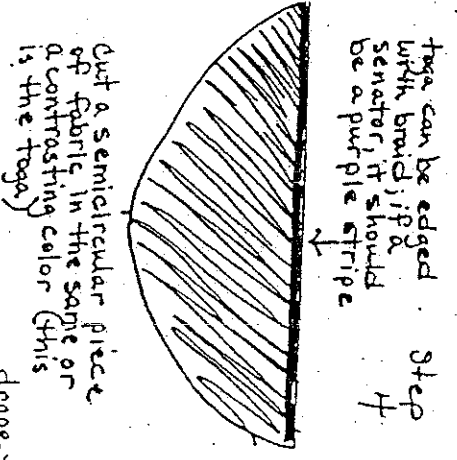 Step
4
toga can be edged
with braid; if a
senator, it should
be a purple stripe
Cut a semicircular piece
of fabric in the same or
a contrasting color (this
is the toga)